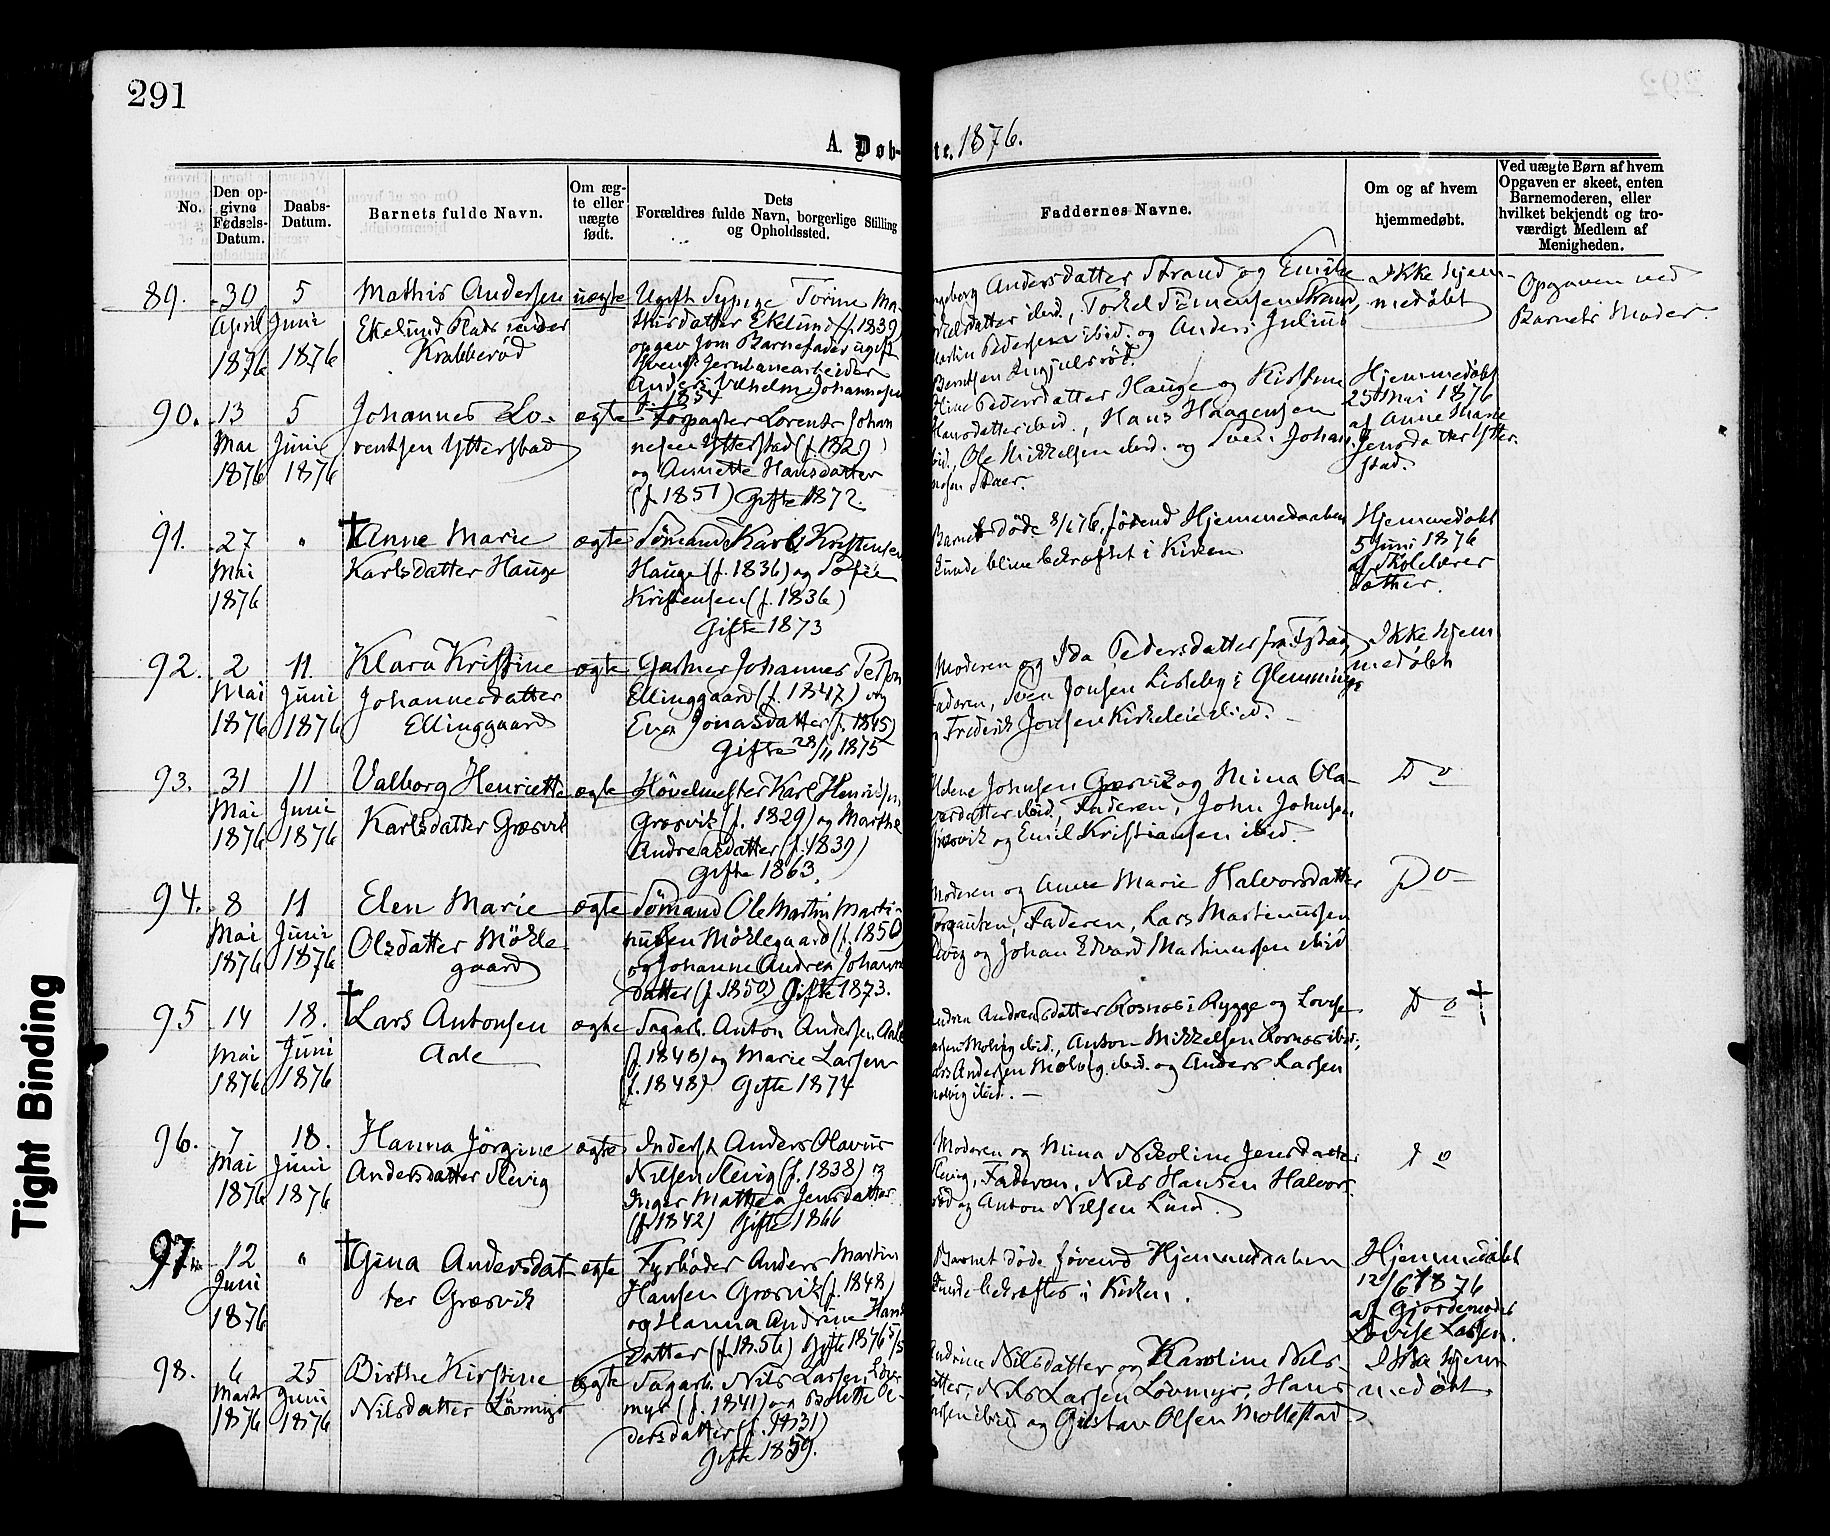 291
A. Døb-
te. 1876.
No.
Den op-
givne
Fødsels-
Datum.
Daabs-
Datum.
Barnets fulde Navn.
Om æg-
te eller
uægte
født.
Dets
Forældres fulde Navn, borgerlige Stilling
og Opholdssted.
Faddernes Navne.
Om og af hvem
hjemmedøbt.
Ved uægte Børn af hvem
Opgaven er skeet, enten
Barnemoderen, eller
hvilket bekjendt og tro-
værdigt Medlem af
Menigheden.
89.
30
April
1876
5
Juni
1876
Mathis Andersen
Ekelund Plads under
Krabberød
uægte
Ugift Sypige Torine Ma-
thisdatter Ekelund (f. 1839)
opgav som Barnefader ugift
Svensk Jernbanearbeider
Anders Vilhelm Johannesen
f. 1854
Andersdatter Strand og Emilie
ibid., Torkel Simensen Strand,
Martin Pedersen ibid. og Anders Julius
Berntsen
Ikke hjem-
medøbt
Opgaven ved
Barnets Moder.
90.
13
Mai
1876
5
Juni
1876
Johannes Lo-
rentsen Ytterstad
ægte
Forpagter Lorents Johan
nesen Ytterstad (f. 1829)
og Annette Hansdatter
(f. 1851) Gifte 1872.
Pedersdatter Hauge og Kirstine
Hansdatter ibid., Hans Haagensen
ibid., Ole Mikkelsen ibid. og Sven Johan-
nesen
Hjemmedøbt
25 Mai 1876
af Anne Marie
Jensdatter Ytter-
stad.
91.
27
Mai
1876
"
† Anne Marie
Karlsdatter Hauge
ægte
Sømand Karl Kristensen
Hauge (f. 1836) og Sofie
Kristensen (f. 1836)
Gifte 1873
Barnet døde 8/6 76, førend Hjemmedaaben
kunde blive bekræftet i Kirken
Hjemmedøbt
5 Juni 1876
af Skolelærer
Sæther.
92.
2
Mai
1876
11.
Juni
1876
Klara Kristine
Johannesdatter
Ellinggaard
ægte
Gartner Johannes Petson
Ellinggaard (f. 1847) og
Eva Jonasdatter (f. 1845)
Gifte 28/11 1875
Moderen og Ida Pedersdatter fra
Faderen, Sven Jonsen Lisleby i Glemminge
og Frederik Jonsen Kirkeleie ibid.
Ikke hjem
medøbt
93.
31
Mai
1876
11
Juni
1876
Valborg Henriette
Karlsdatter Græsvik
ægte
Høvelmester Karl Henriksen
Græsvik (f. 1829) og Marthe
Andreasdatter (f. 1839)
Gifte 1863.
Helene Johnsen Græsvik og Mina Ola-
versdatter ibid., Faderen, John Johnsen
Græsvik og Emil Kristiansen ibid.
Do
94.
8
Mai
1876
11
Juni
1876
Elen Marie
Olsdatter Møkle-
gaard
ægte
Sømand Ole Martin Marti-
nusen Møklegaard (f. 1850)
og Johanne Andrea Johanne
datter (f. 1850) Gifte 1873.
Moderen og Anne Marie Halvorsdatter
Torgauten, Faderen, Lars Martinussen
og Johan Edvard Martinussen ibid
Do
95
14
Mai
1876
18.
Juni
1876
† Lars Antonsen
Aale
ægte
Sagarb. Anton Andersen Aale
(f. 1848) og Marie Larsen
(f. 1848). Gifte 1874
Andrea Andreasdatter Rosnæs i Rygge og Lovise
Larsen Molvig ibid., Anton Mikkelsen Rosnæs ibid.,
Lars Andersen Molvig ibid. og Anders Larsen
Molvig ibid. —
Do †
96.
7
Mai
1876
18.
Juni
1876
Hanna Jørgine
Andersdatter Slevig
ægte
Inderst Anders Olavus
Nilsen Slevig (f. 1838) og
Inger Mathea Jensdatter
(f. 1842) Gifte 1866
Moderen og Mina Nikoline Jensdatter
Slevig, Faderen, Nils Hansen Halvors-
rød og Anton Nilsen Lund.
Do
97
12
Juni
1876
"
† Gina Andersdat-
ter Græsvik
ægte
Fyrbøder Anders Martin
Hansen Græsvik (f. 1848)
og Hanna Andrine Hans
datter (f. 1856) Gifte 1876 5/5
Barnet døde førend Hjemmedaaben
kunde bekræftes i Kirken.
Hjemmedøbt
12/6 1876
af Gjordemoder
Lovise Larsen.
98.
6
Marts
1876
25
Juni
1876
Birthe Kirstine
Nilsdatter Løvmyr
ægte
Sagarb. Nils Larsen Løv-
myr (f. 1841) og Bolette Pe-
dersdatter (f. 1831)
Gifte 1859.
Andrine Nilsdatter og Karoline Nils-
datter, Nils Larsen Løvmyr, Hans
Larsen ibid og Gustav Olsen Mollestad.
Ikke hjem-
medøbt.
Tight Binding